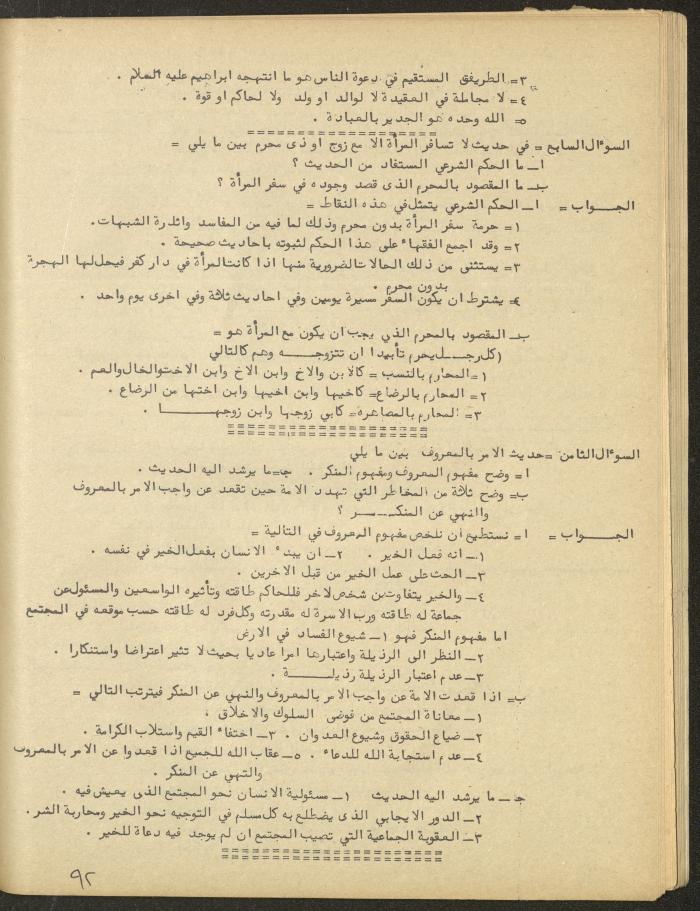 ٣= الطريق المستقيم في دعوة الناس هو ما انتهجه ابراهيم عليه السلام .
٤= لا مجاملة في العقيدة لا لوالد او ولد ولا لحاكم او قوة .
٥= الله وحده هو الجدير بالعبادة .
===================
السؤال السابع = في حديث لا تسافر المرأة الا مع زوج او ذى محرم بين ما يلي =
ا ـ ما الحكم الشرعي المستفاد من الحديث ؟
بـ ما المقصود بالمحرم الذى قصد وجوده في سفر المرأة ؟
الجـــواب = ا ـ الحكم الشرعي يتمثل في هذه النقاط =
١= حرمة سفر المرأة بدون محرم وذلك لما فيه من المفاسد واثارة الشبهات.
٢= وقد اجمع الفقهاء على هذا الحكم لثبوته باحاديث صحيحة .
٣= يستثنى من ذلك الحالات الضرورية منها اذا كانت المرأة في دار كفر فيحل لها الهجرة
بدون محرم .
٤= يشترط ان يكون السفر مسيرة يومين وفي احاديث ثلاثة وفي اخرى يوم واحد .
بـ المقصود بالمحرم الذي يجب ان يكون مع المرأة هو =
(كل رجـــل يحرم تأبيدا ان تتزوجـــه وهم كالتالي
١= المحارم بالنسب = كالابن والاخ وابن الاخ وابن الاخت والخال والعم .
٢= المحارم بالرضاع= كاخيها وابن اخيها وابن اختها من الرضاع .
٣= المحارم بالمصاهرة= كابي زوجها وابن زوجهـــا .
====================
السؤال الثامن = حديث الامر بالمعروف بين ما يلي
ا= وضح مفهوم المعروف ومفهوم المنكر . جـ= ما يرشد اليه الحديث .
ب= وضح ثلاثة من المخاطر التي تهدد الامة حين تقعد عن واجب الامر بالمعروف
والنهي عن المنكـــر ؟
الجـــواب = ا= نستطيع ان نلخص مفهوم المعروف في التالية =
١ـ انه فعل الخير . ٢ـ ان يبدء الانسان بفعل الخير في نفسه .
٣ـ الحث على عمل الخير من قبل الاخرين .
٤ـ والخير يتفاوت من شخص لاخر فللحاكم طاقته وتأثيره الواسعين والمسئول عن
جماعة له طاقته ورب الاسرة له مقدرته وكل فرد له طاقته حسب موقعه في المجتمع
اما مفهوم المنكر فهو ١ـ شيوع الفساد في الارض
٢ـ النظر الى الرذيلة واعتبارها امرا عاديا بحيث لا تثير اعتراضا واستنكارا .
٣ـ عدم اعتبار الرذيلة رذيلـــة .
ب= اذا قعدت الامة عن واجب الامر بالمعروف والنهي عن المنكر فيترتب التالي =
١ـ معاناة المجتمع من فوضى السلوك والاخلاق .
٢ـ ضياع الحقوق وشيوع العدوان . ٣ـ اختفاء القيم واستلاب الكرامة .
٤ـ عدم استجابة الله للدعاء . ٥ـ عقاب الله للجميع اذا قعدوا عن الامر بالمعروف
والنهي عن المنكر .
جـ ـ ما يرشد اليه الحديث ١ـ مسئولية الانسان نحو المجتمع الذى يعيش فيه .
٢ـ الدور الايجابي الذى يضطلع به كل مسلم في التوجيه نحو الخير ومحاربة الشر.
٣ـ العقوبة الجماعية التي تصيب المجتمع ان لم يوجد فيه دعاة للخير .
======================
٩٢